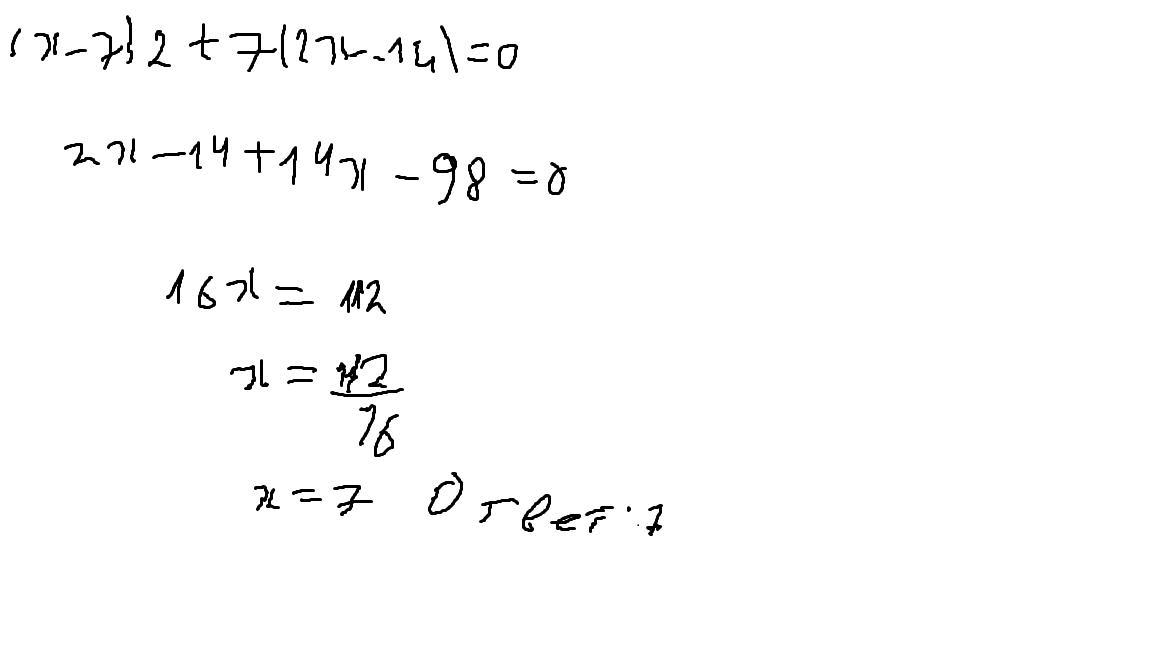 (x-7)2+7(2x-14)=0
2x-14+14x-98=0
16x=112
x=112/16
x=7 Ответ:7